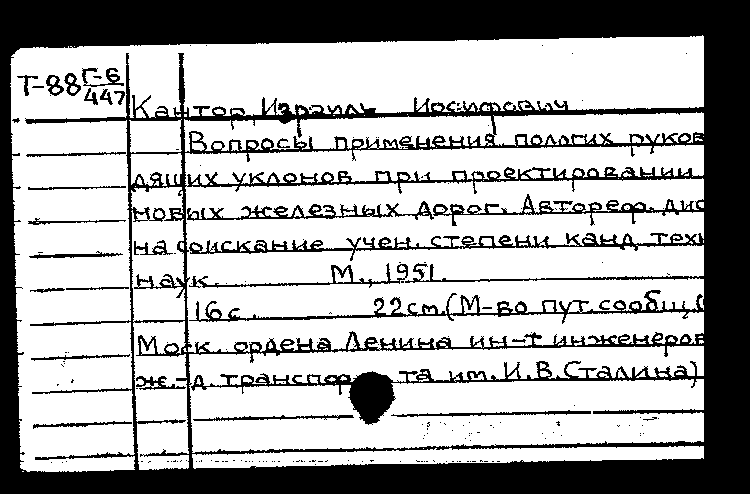 Т-88 Г-6
447
Кантор Израиль Иосифович
Вопросы применения пологих руков
дящих уклонов при проектировании
новых железных дорог. Автореф. дис
на соискание учен. степени канд техн
наук. М., 1951.
16с. 22см. (М-во пут. сообщ,
Моск. ордена Ленина ин-т инженеров
ж.-д. транспор та им. И.В.Сталина)